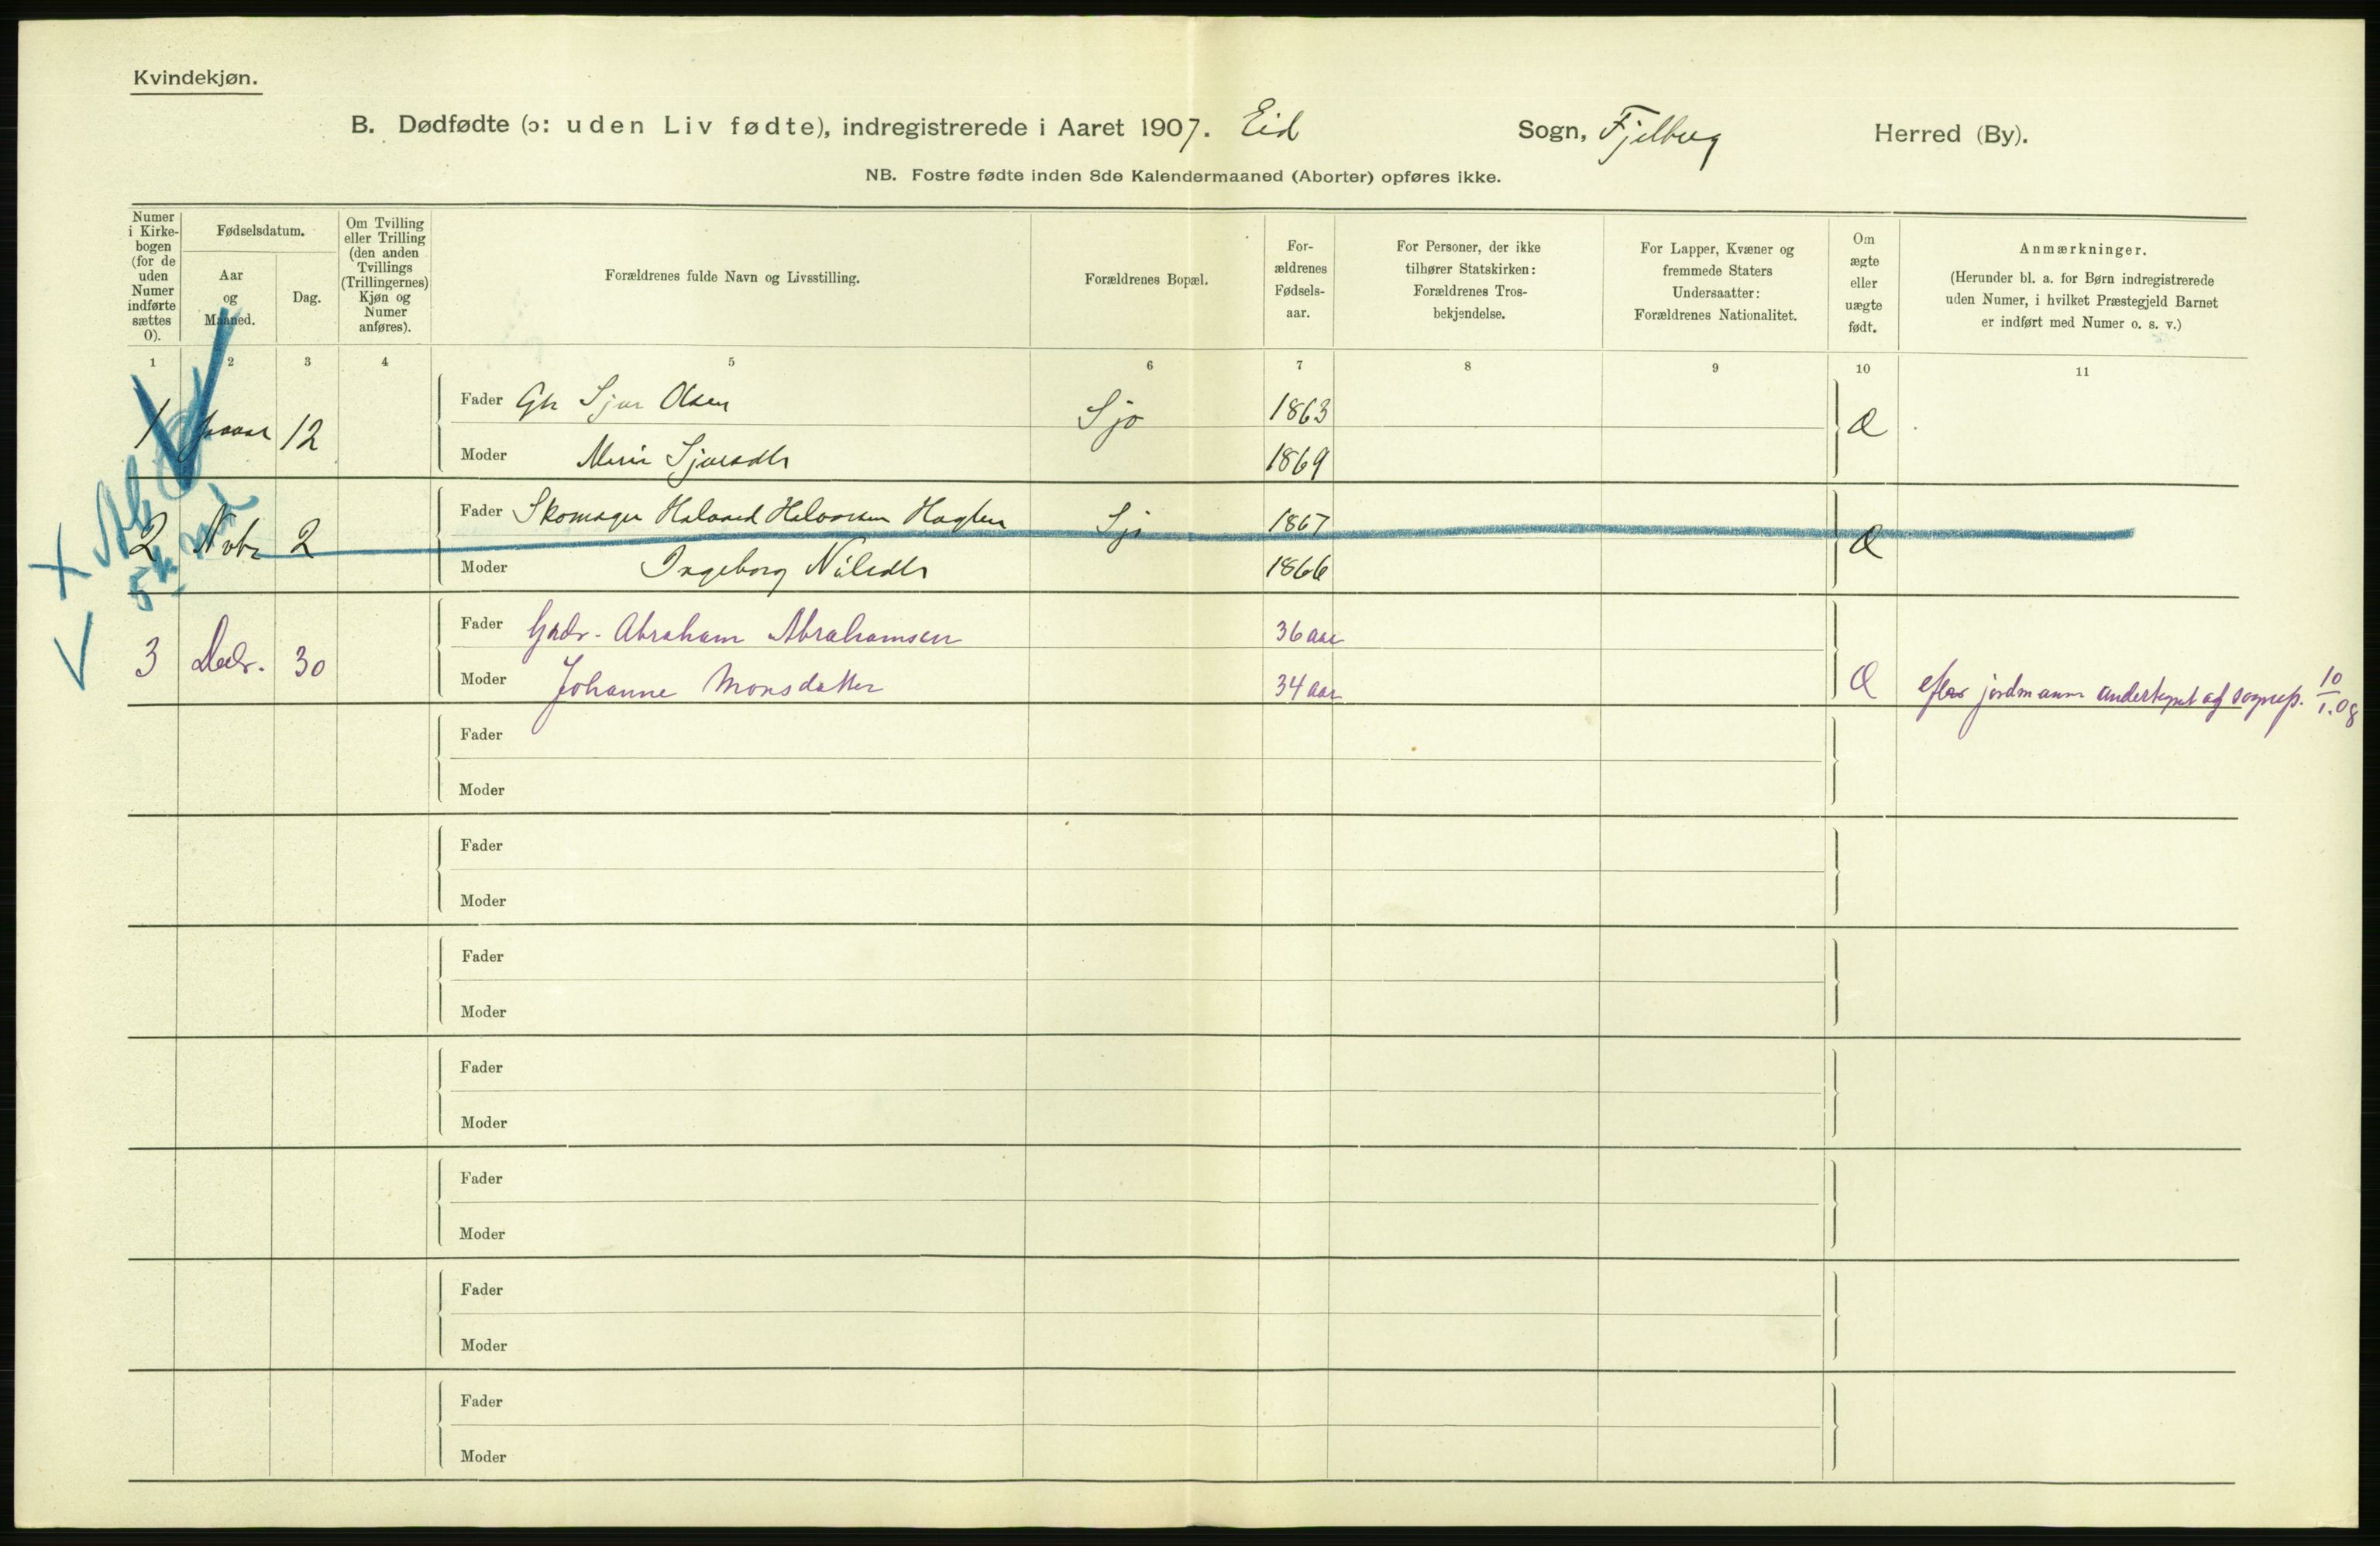 Kvindekjøn.
B. Dødfødte (ɔ: uden Liv fødte), indregistrerede i Aaret 1907. Eid Sogn, Fjelberg Herred (By).
NB. Fostre fødte inden 8de Kalendermaaned (Aborter) opføres ikke.
Numer i Kirkebogen (for de uden Numer indførte sættes 0).
Fødselsdatum.
Aar og Maaned.
Dag.
Om Tvilling eller Trilling (den anden Tvillings (Trillingernes) Kjøn og Numer anføres).
Forældrenes fulde Navn og Livsstilling.
Forældrenes Bopæl.
For-
ældrenes
Fødsels-
aar.
For Personer, der ikke
tilhører Statskirken:
Forældrenes Tros-
bekjendelse.
For Lapper, Kvæner og
fremmede Staters
Undersaatter:
Forældrenes Nationalitet.
Om
ægte
eller
uægte
født.
Anmærkninger.
(Herunder bl. a. for Børn indregistrerede
uden Numer, i hvilket Præstegjeld Barnet
er indført med Numer o. s. v.)
1 2 3 4 5 6 7 8 9 10 11
Fader Gbr Sjur Olsen Sjo 1863
1 12 Æ
Moder Sjursdtr 1869
Fader Skomager Halvard Halvorsen 1867
2 Nvbr 2 Æ
Moder Ingeborg Nilsdtr 1866
Fader Grdr. Abraham Abrahamsen 36 aar
3 Decbr. 30
Moder Johanne Monsdatter 34 aar Æ 10/1.08
Fader
Moder
Fader
Moder
Fader
Moder
Fader
Moder
Fader
Moder
Fader
Moder
Fader
Moder